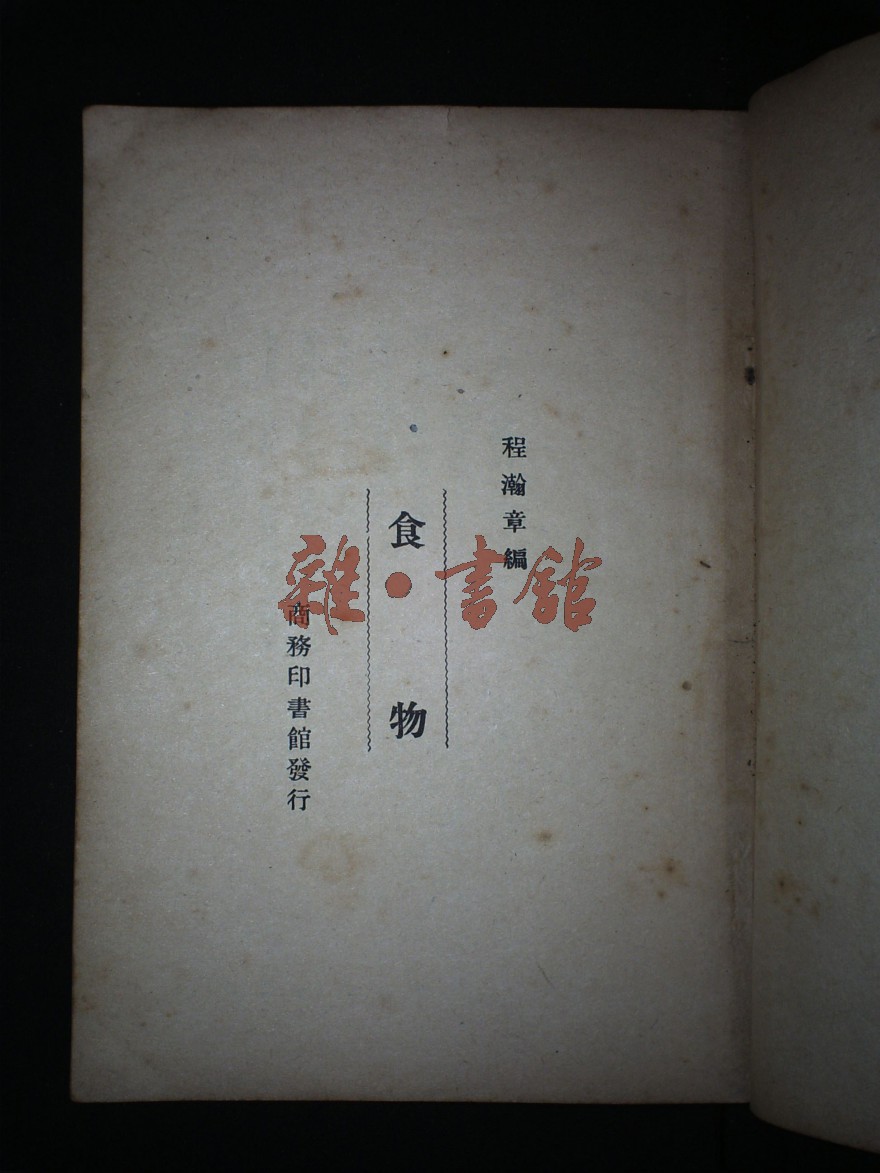 程瀚章編
食物
商務印書館發行
雜·書館